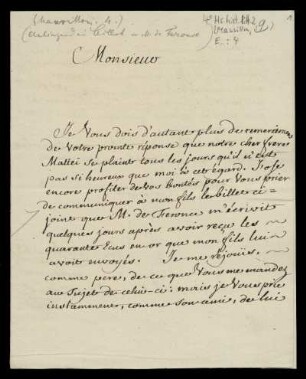 Monsieur
Je Vous dois d'autant plus de remerciemens
de Votre promte réponse que notre cher frere
Mattei se plaint tous les jours qu'il n'est
pas si heureux que moi à cet égard. J'ose
encore profiter de vos bontés pour Vous prier
de communiquer à mon fils le billet ci-
joint que M. de Feronce m'écrivit
quelques jours après avoir reçu les
quarante Ecus en or que mon fils lui
avoit envoyés. Je me réjouis,
comme pere, de ce que Vous me mandez
au Sujet de celui-ci: mais je Vous prie
instamment, comme son ami, de lui